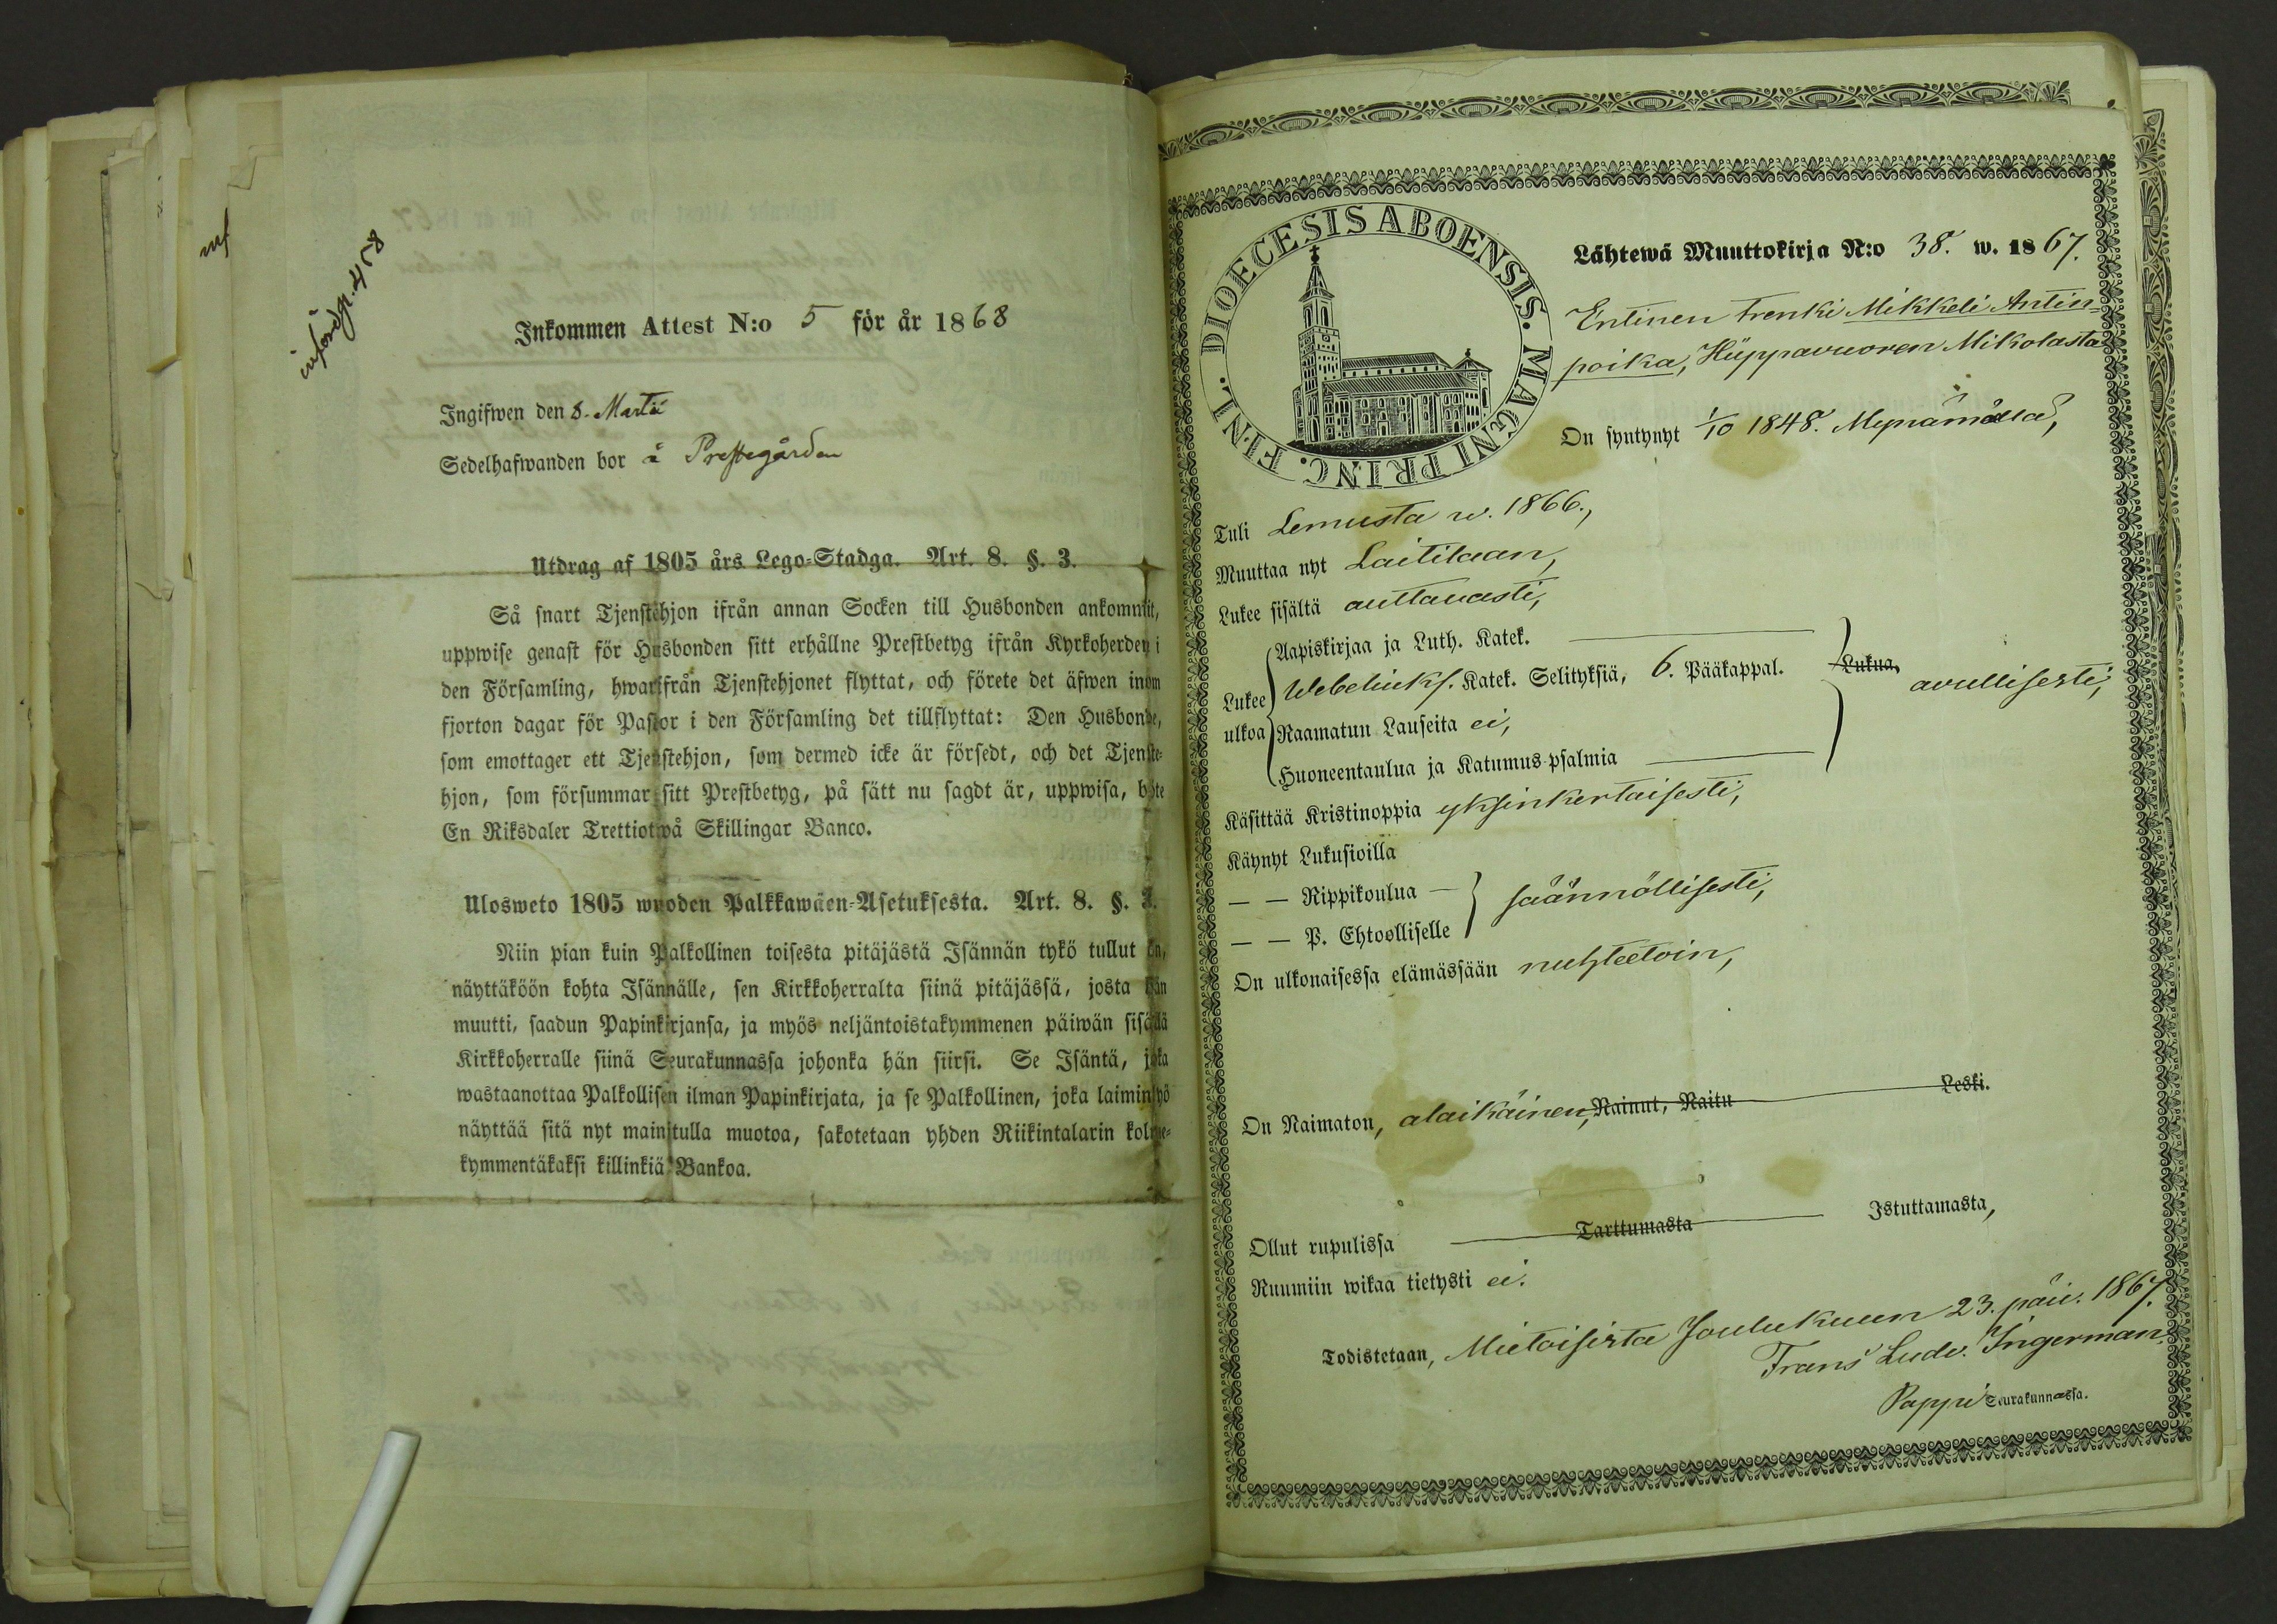 införd p. 458
Inkommen Attest N:o 5 för år 1868
Ingifwen den 8. Martii
Sedelhafwanden bor å Prestegården
Utdrag af 1805 års Lego-Stadga. Art. 8. §. 3.
Så snart Tjenstehjon ifrån annan Socken till Husbonden ankommit,
uppwise genast för Husbonden sitt erhållne Prestbetyg ifrån Kyrkoherden i
den Församling, hwarifrån Tjenstehjonet flyttat, och förete det äfwen inom
fjorton dagar för Pastor i den Församling det tillflyttat: Den Husbonde,
som emottager ett Tjenstehjon, som dermed icke är försedt, och det Tjenste-
hjon, som försummar sitt Prestbetyg, på sätt nu sagdt är, uppwisa, böte
En Riksdaler Trettiotwå Skillingar Banco.
Ulosweto 1805 wuoden Palkkawäen-Asetuksesta. Art. 8. §. 3.
Niin pian kuin Palkollinen toisesta pitäjästä Isännän tykö tullut on,
näyttäköön kohta Isännälle, sen Kirkkoherralta siinä pitäjässä, josta hän
muutti, saadun Papinkirjansa, ja myös neljäntoistakymmenen päiwän sisällä
Kirkkoherralle siinä Seurakunnassa johonka hän siirsi. Se Isäntä, joka
wastaanottaa Palkollisen ilman Papinkirjata, ja se Palkollinen, joka laiminlyö
näyttää sitä nyt mainitulla muotoa, sakotetaan yhden Riikintalarin kolme-
kymmentäkaksi killinkiä Bankoa.
DIOECESIS ABOENSIS. MAGNI PRINC. FINL.
Lähtewä Muuttokirja N:o 38. w. 1867.
Entinen trenki Mikkeli Antin-
poika, Hüppavuoren Mikolasta
On syntynyt 1/10 1848. Mynämällä,
Tuli Lemusta w. 1866.,
Muuttaa nyt Laitilaan,
Lukee sisältä auttavasti,
Aapiskirjaa ja Luth. Katek.
Lukee ulkoa Webeliuks. Katek. Selityksiä, 6. Pääkappal. Lukua, avullisesti,
Raamatun Lauseita ei,
Huoneentaulua ja Katumus-psalmia
Käsittää Kristinoppia yksinkertaisesti,
Käynyt Lukusioilla
— — Rippikoulua —
säännöllisesti,
— — P. Ehtoolliselle
On ulkonaisessa elämässään nuhteetoin,
On Naimaton, alaikäinen, Nainut, Naitu Leski.
Ollut rupulissa Tarttumasta Istuttamasta,
Ruumiin wikaa tietysti ei.
Todistetaan, Mietoisista Joulukuun 23. päiv. 1867.
Frans Ludv. Ingerman
Pappi Seurakunnassa.